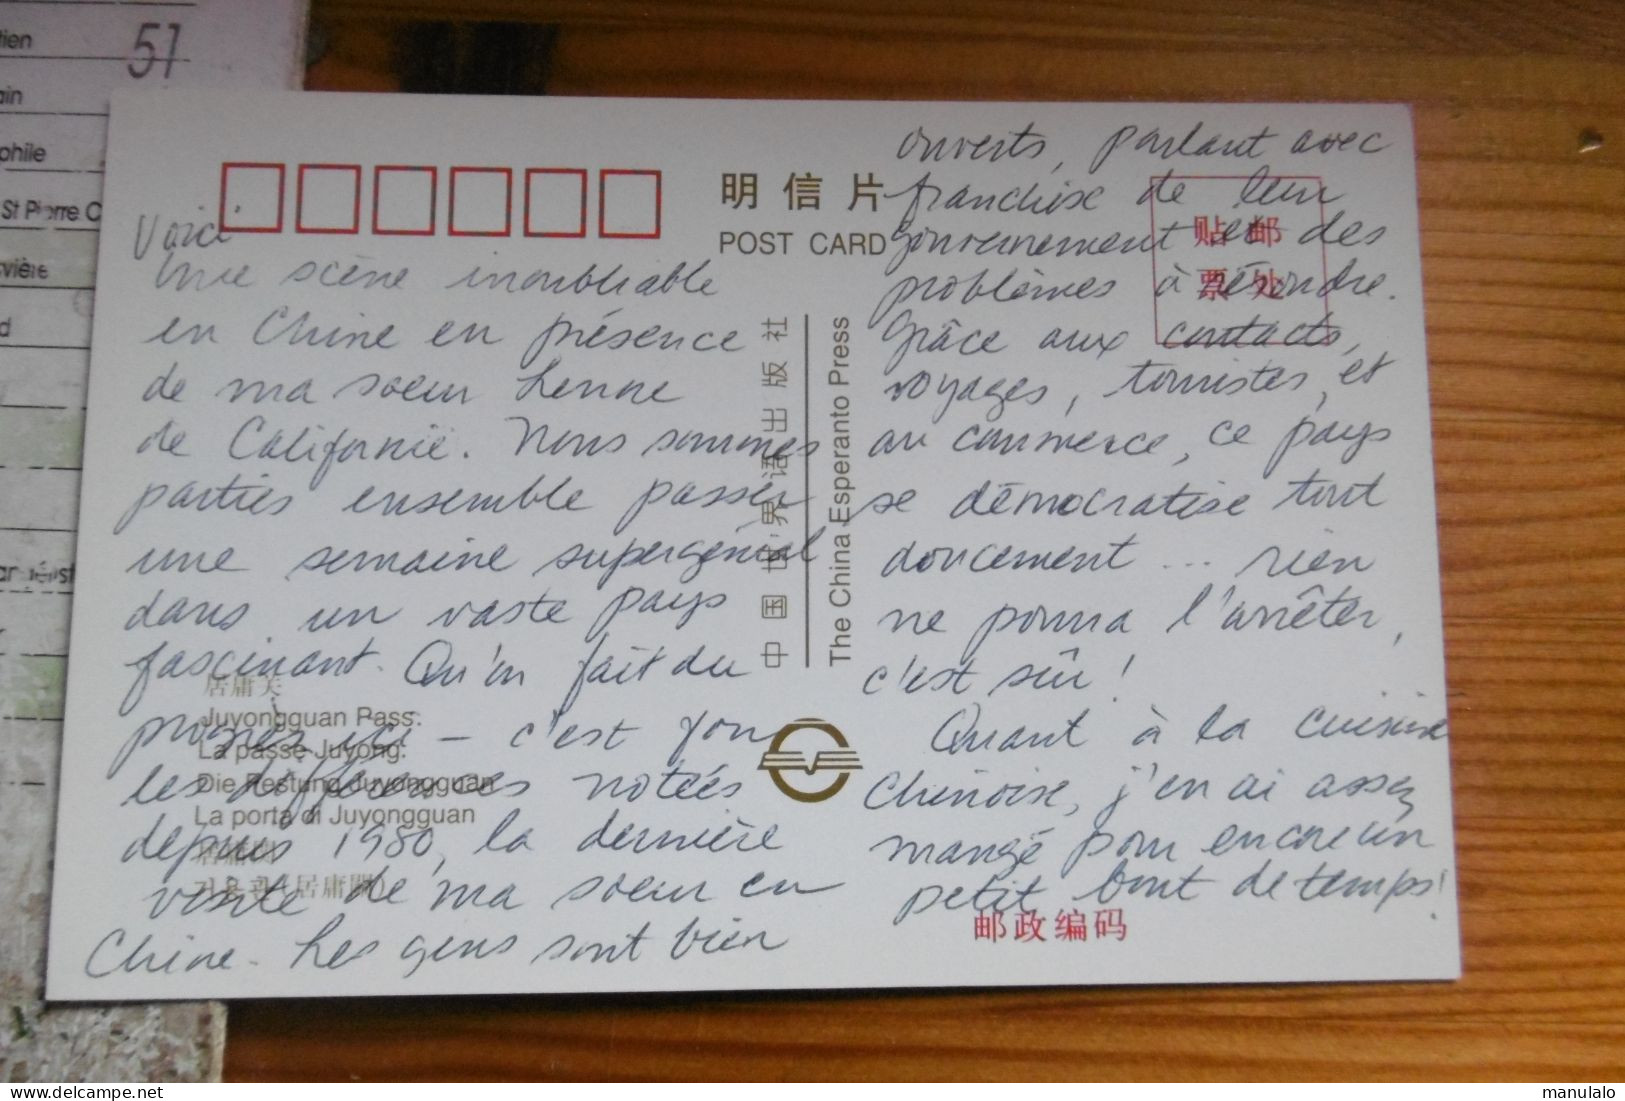 51
tien
ain
phile
St Pierre C
vière
d
明信片
POST CARD
贴邮
票处
Voici
Une scène inoubliable
en Chine en présence
de ma soeur Lenne
de Californie. Nous sommes
parties ensemble passer
une semaine supergénial
dans un vaste pays
fascinant. Qu'on fait du
progrès ici – c'est fou
les différences notées
depuis 1980, la dernière
visite de ma soeur en
Chine. Les gens sont bien
ouverts, parlant avec
franchise de leur
gouvernement et des
problèmes à résoudre.
Grâce aux contacts,
voyages, touristes, et
au commerce, ce pays
se démocratise tout
doucement ... rien
ne pourra l'arrêter,
c'est sûr!
Quant à la cuisine
Chinoise, j'en ai assez
mangé pour encore un
petit bout de temps!
中国世界语出版社
The China Esperanto Press
居庸关
Juyongguan Pass.
La passe Juyong.
Die Festung Juyongguan
La porta di Juyongguan
居庸関
거용관(居庸關)
邮政编码
manulalo
delcampe.net